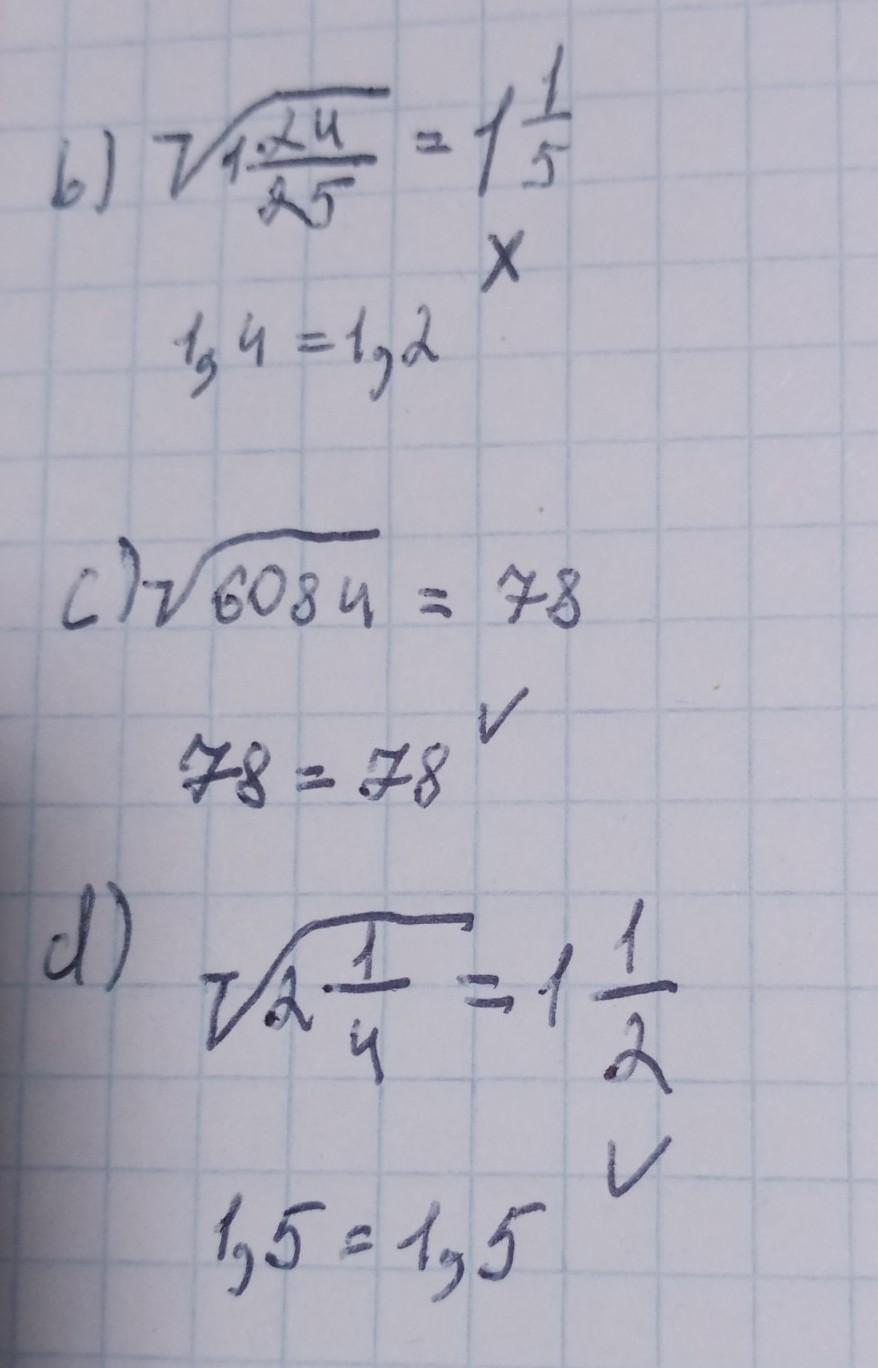 b) √1 24/25 = 1 1/5
x
1,4 = 1,2
c) √6084 = 78
✓
78 = 78
d) √2 1/4 = 1 1/2
✓
1,5 = 1,5